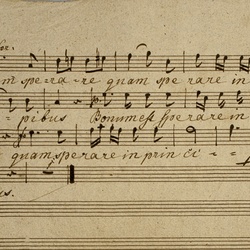 m spe=ra=re quam spe rare in
=pibus Bonum est sperare in
quam sperare in prin ci=